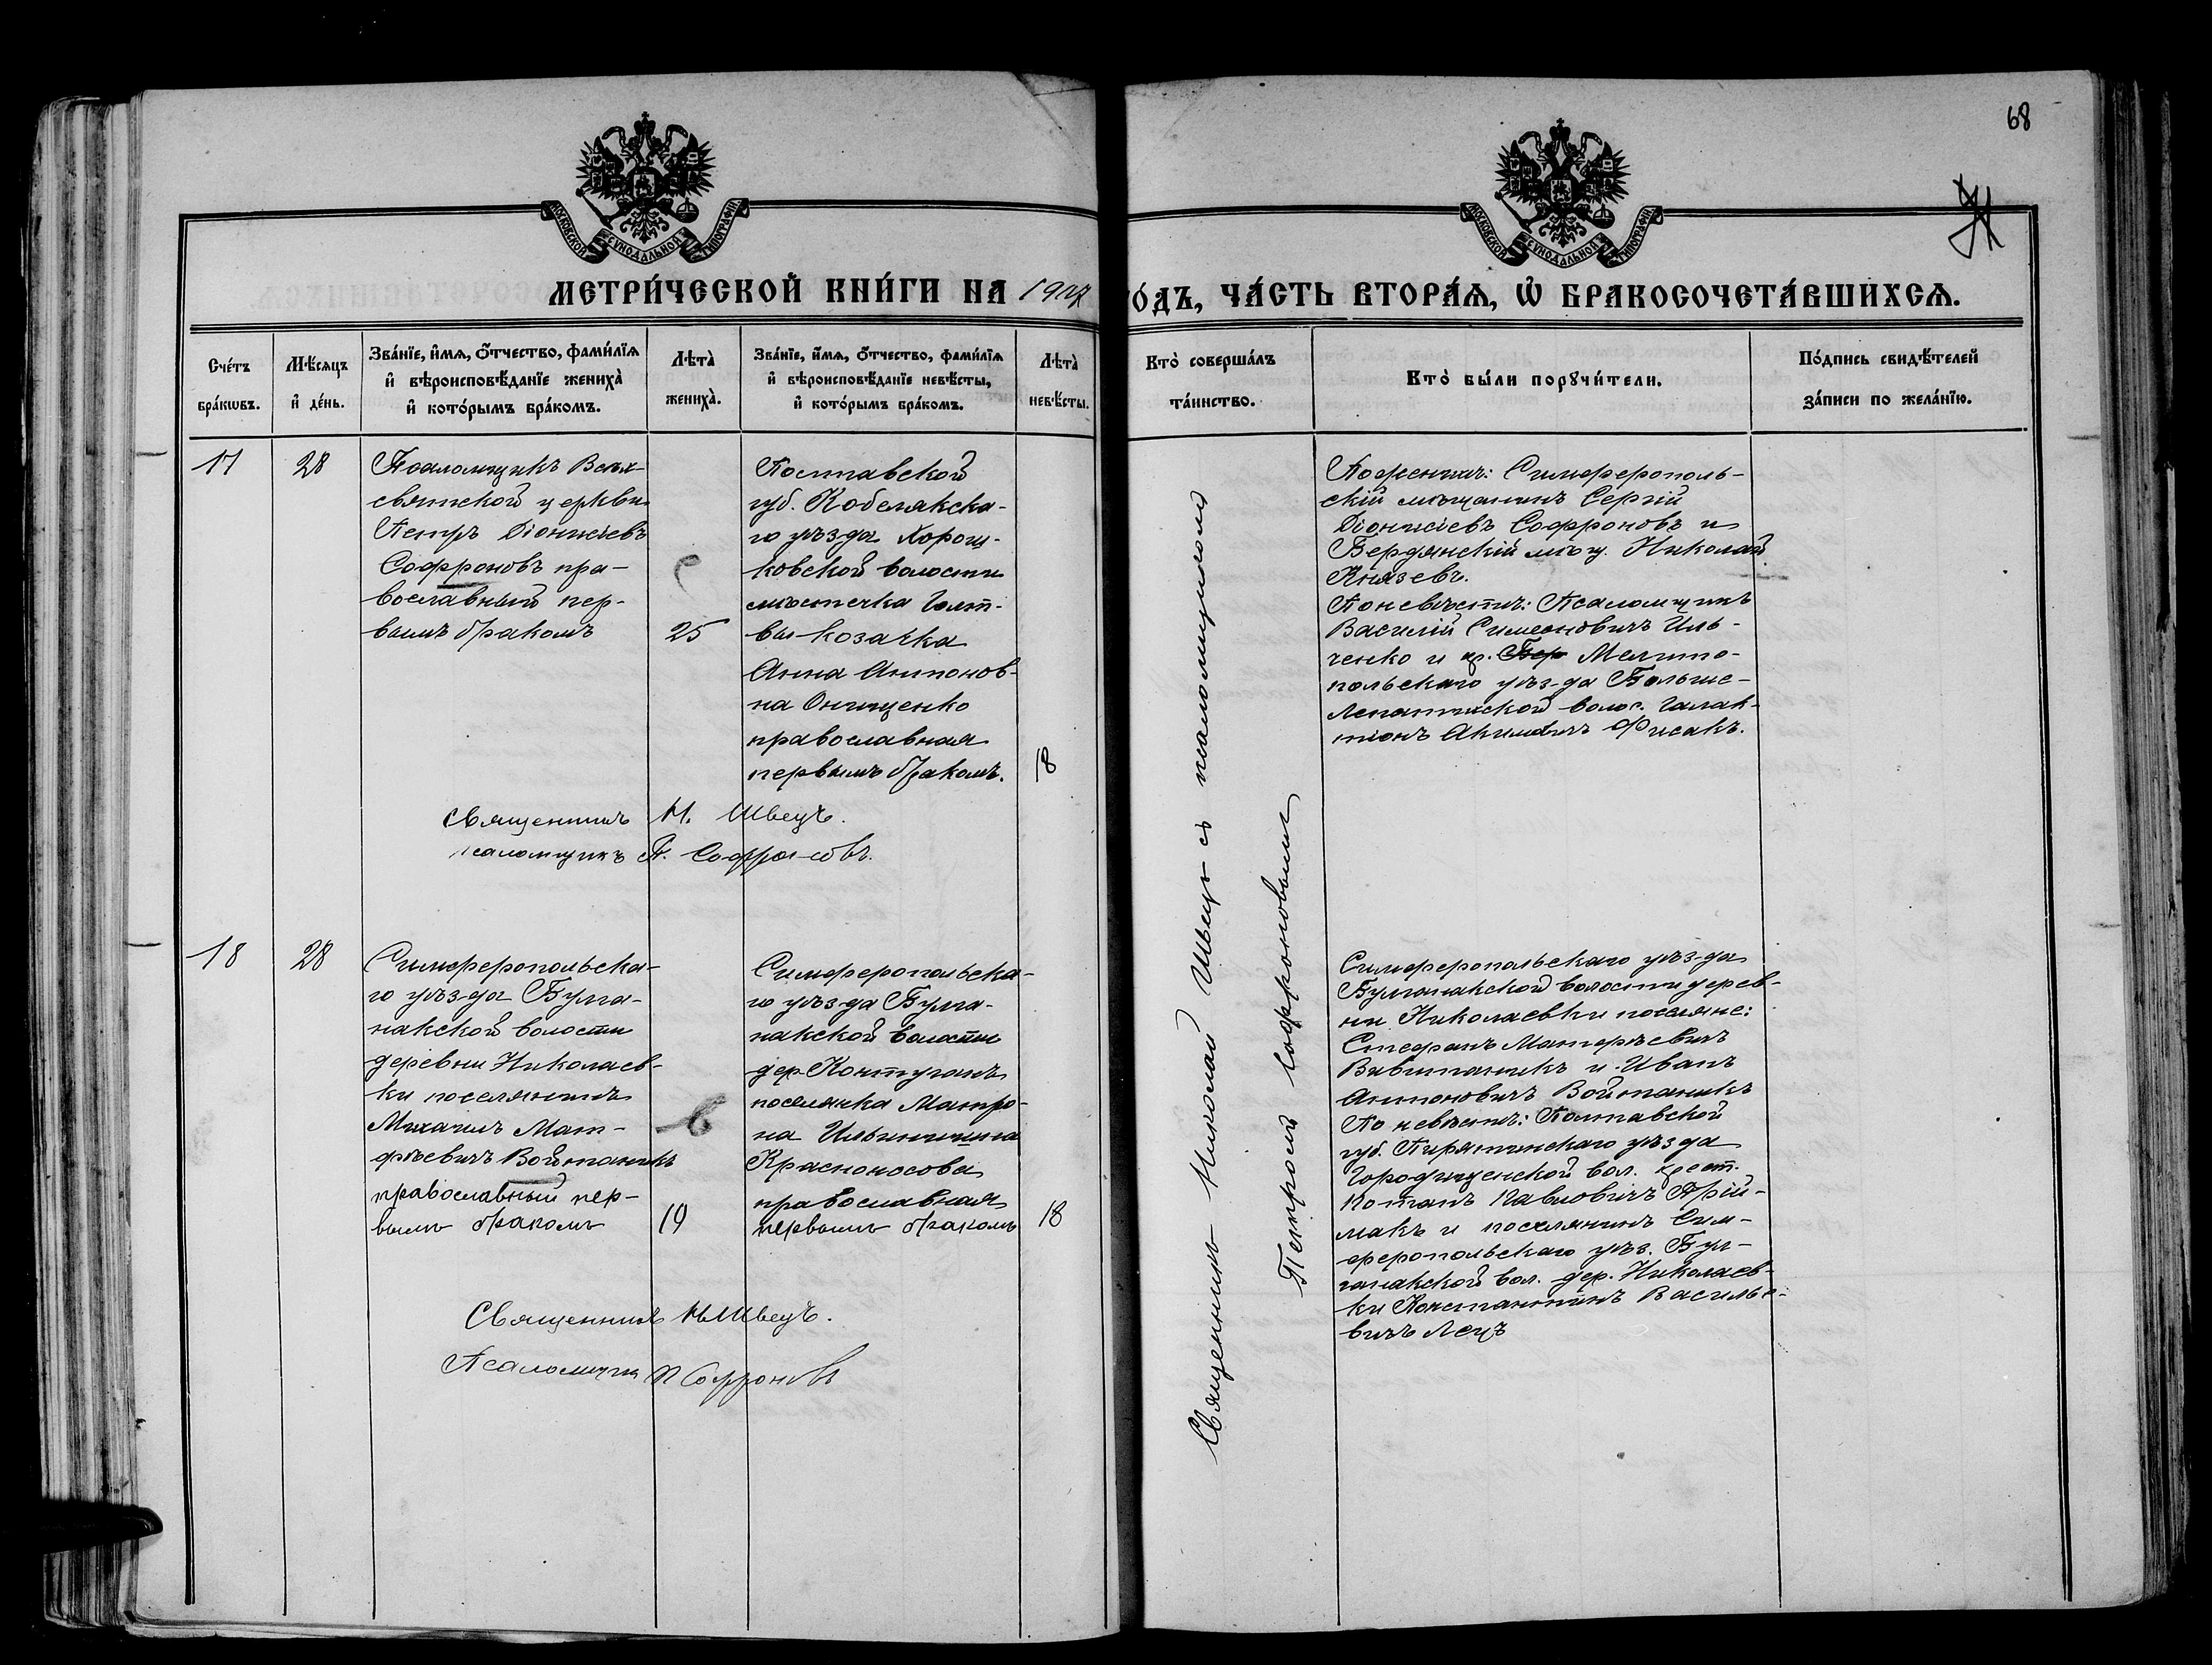 68
МОСКОВСКОЙ СѴНОДАЛЬНОЙ ТИПОГРАФІИ
МОСКОВСКОЙ СѴНОДАЛЬНОЙ ТИПОГРАФІИ
МЕТРИ́ЧЕСКОЙ КНИ́ГИ НА
ГО́ДЪ, ЧА́СТЬ ВТОРА́Ѧ, Ѡ҆ БРАКОСОЧЕТА́ВШИХСѦ.
Сче́тъ
бра́кѡвъ.
Мѣ́сѧцъ
и҆ де́нь.
Зва́нїе, и҆́мѧ, ѻ҆́тчество, фами́лїѧ
и҆ вѣроисповѣ́данїе жениха̀
и҆ кото́рымъ бра́комъ.
Лѣта̀
жениха̀.
Зва́нїе, и҆́мѧ, ѻ҆́тчество, фами́лїѧ
и҆ вѣроисповѣ́данїе невѣ́сты,
и҆ кото́рымъ бра́комъ.
Лѣта̀
невѣ́сты.
Кто̀ соверша́лъ
та́инство.
Кто̀ бы́ли порꙋчи́тели.
По́дпись свидѣ́телей
за́писи по жела́нїю.
17
28
Псаломщикъ Всѣх-
святской церкви
Петръ Діонисіевъ
Софроновъ пра-
вославный пер-
вымъ бракомъ
25
Полтавской
губ. Кобелякска-
го уѣзда Хорош-
ковской волости
мѣстечка Голт-
вы козачка
Анна Антонов-
на Онищенко
православная
первымъ бракомъ.
По женихѣ: Симферополь-
скій мѣщанинъ Сергій
Діонисіевъ Софроновъ и
Бердянскій мѣщ. Николай
Князевъ.
По невѣстѣ: Псаломщикъ
Василій Симеоновичъ Иль-
ченко и кр. Бер Мелито-
польскаго уѣзда Больше-
Лепатихской волос. Галак-
тіонъ Акимовичъ Фисакъ.
Священникъ Н. Швецъ.
псаломщикъ П. Софроновъ.
18
28
Симферопольска-
го уѣзда Булга-
накской волости
деревни Николаев-
ки поселянинъ
Михаилъ Мат-
фѣевичъ Войтаникъ
православный пер-
вымъ бракомъ
19
Симферопольска-
го уѣзда Булга-
накской волости
дер. Контуганъ
поселянка Матро-
на Ильинишна
Красноносова
православная
первымъ бракомъ
18
Священникъ Николай Швецъ съ псаломщикомъ
Петромъ Софроновымъ
Симферопольскаго уѣзда
Булганакской волости дерев-
ни Николаевки поселяне:
Стефанъ Матфѣевичъ
и Иванъ
Антоновичъ Войтаникъ
По невѣстѣ: Полтавской
губ. Пирятинскаго уѣзда
Городищенской вол. крест.
Павловичъ Прій-
макъ и поселянинъ Сим-
феропольскаго уѣз. Бул-
ганакской вол. дер. Николаев-
ки Константинъ Василье-
вичъ
Священникъ Н. Швецъ.
Псаломщикъ П Софроновъ